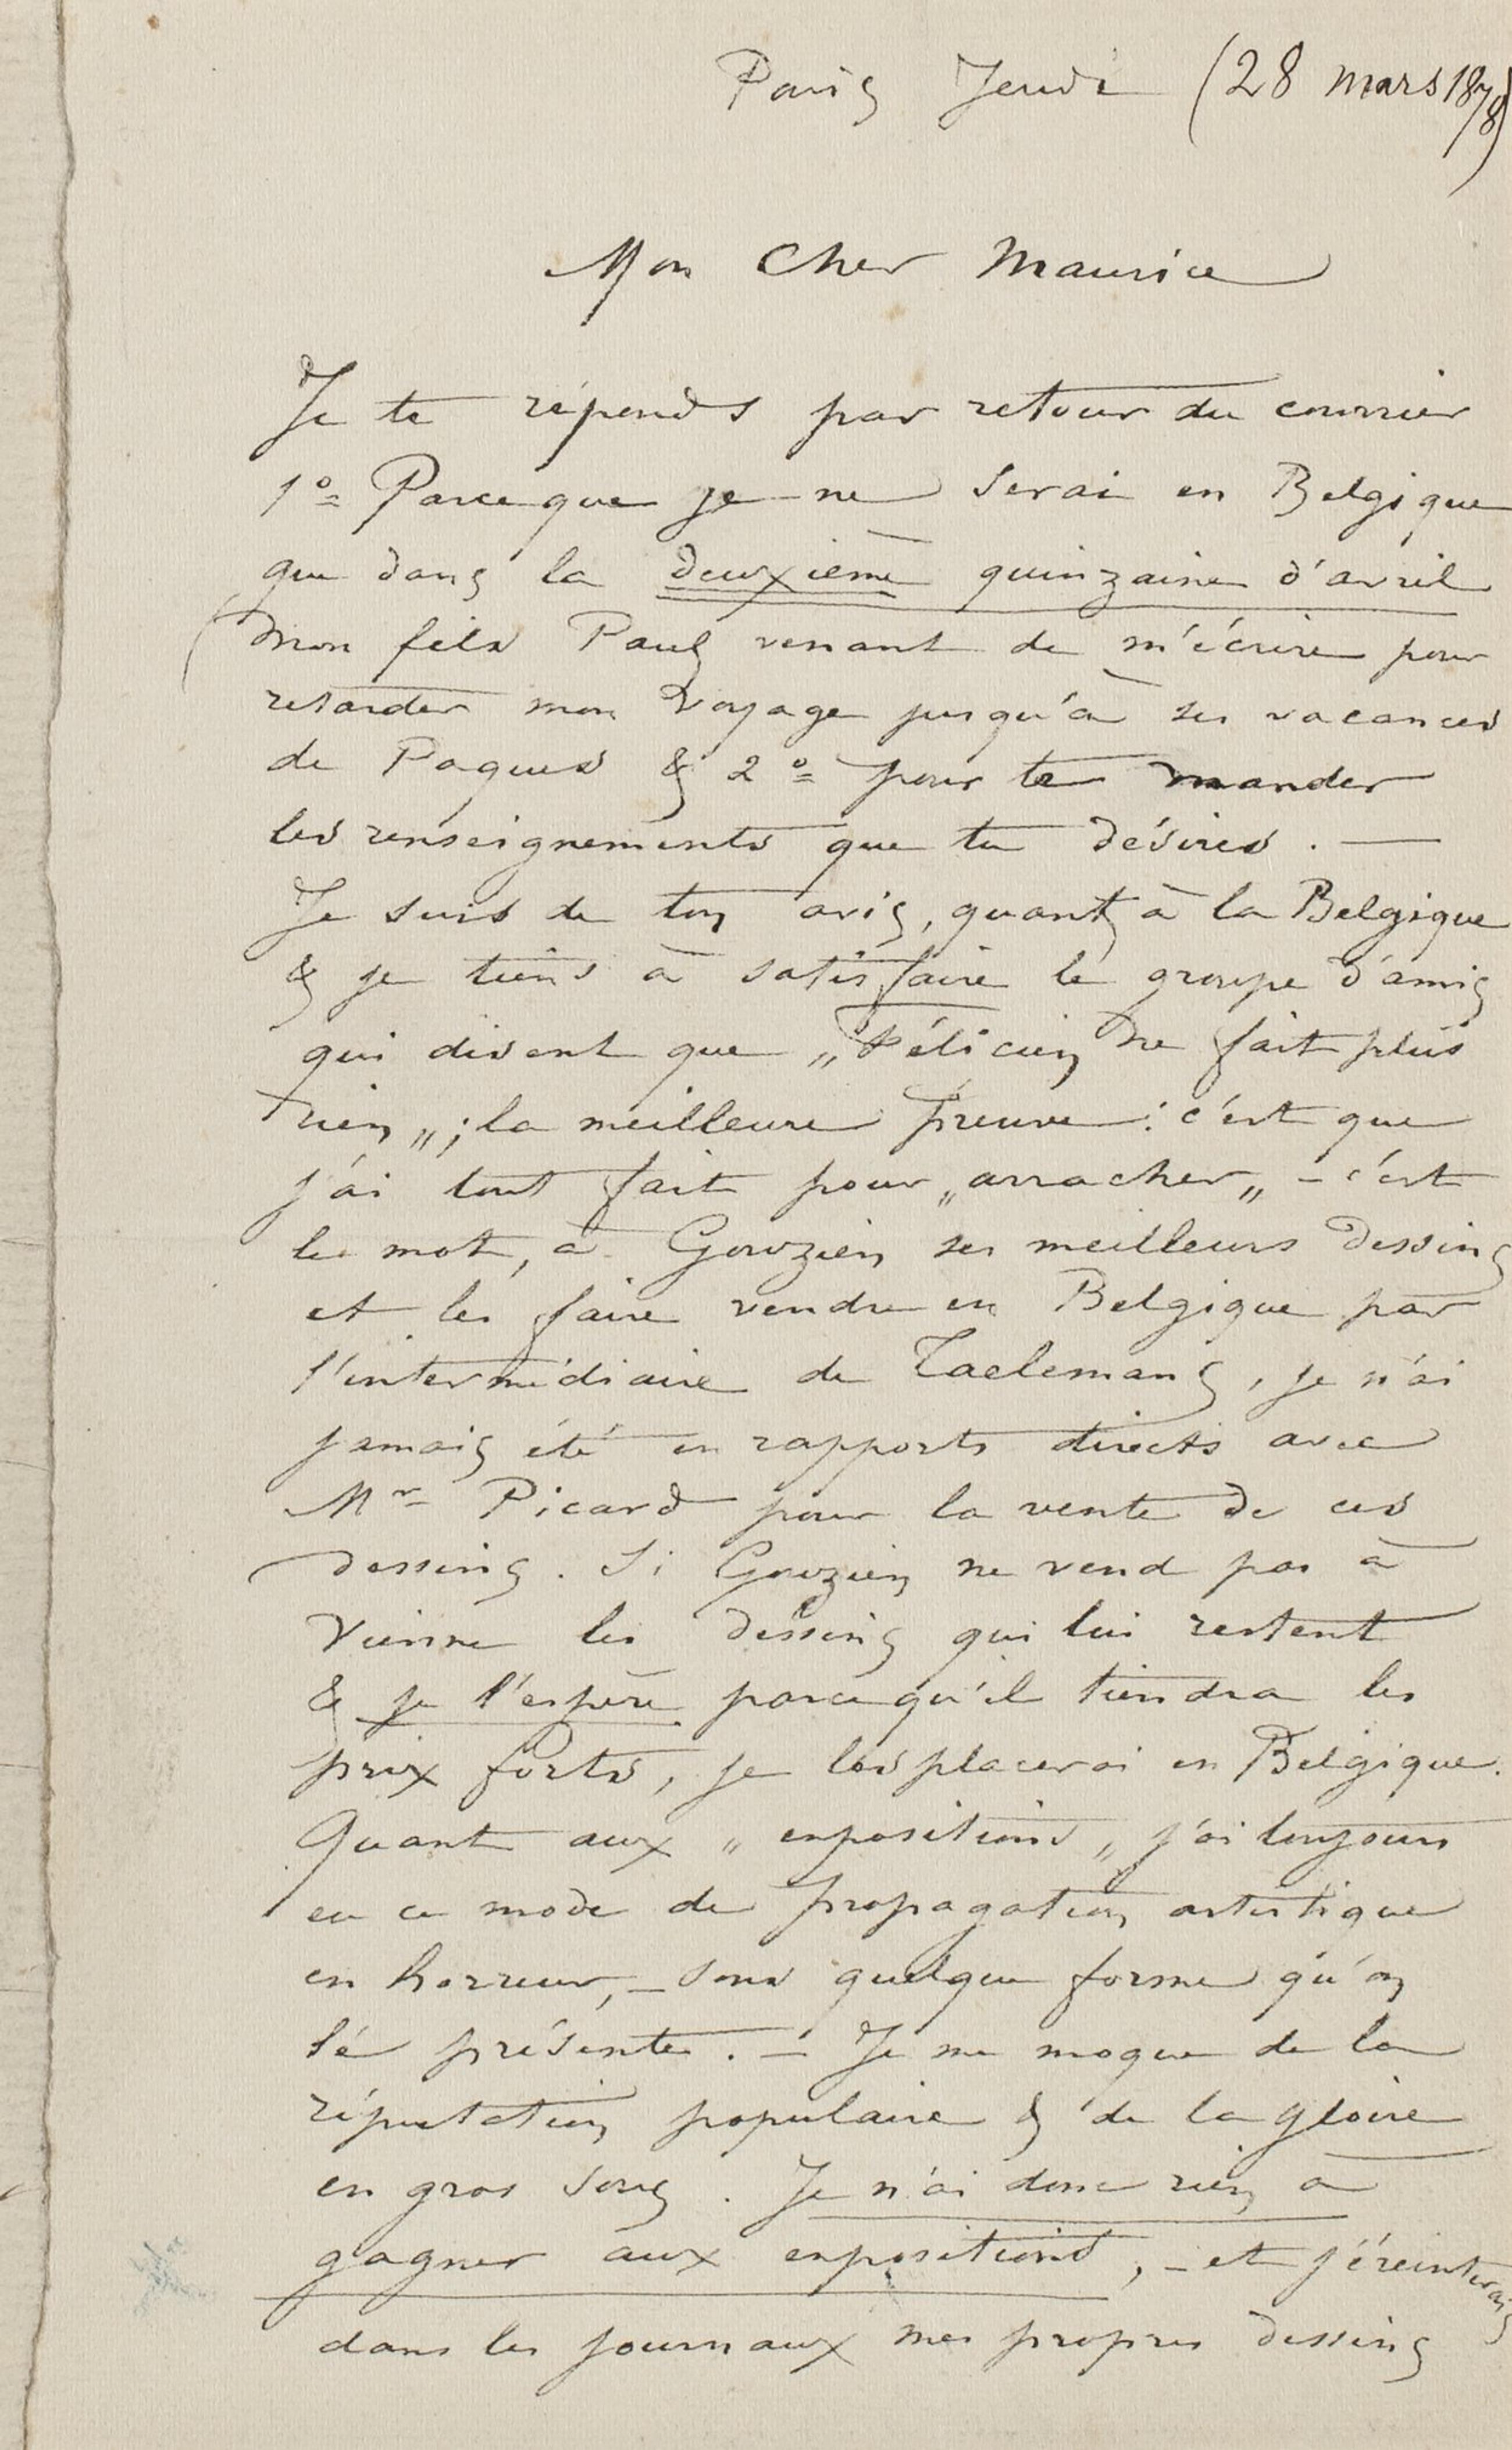 Paris Jeudi (28 mars 1878)
Mon Cher Maurice
Je te réponds par retour du courrier
1º Parceque je ne serai en Belgique
que dans la deuxième quinzaine d'avril
(mon fils Paul venant de m'écrire pour
retarder mon voyage jusqu'à ses vacances
de Paques & 2º pour te mander
les renseignements que tu désires. —
Je suis de ton avis, quant à la Belgique
& je tiens à satisfaire le groupe d'amis
qui disent que „Félicien ne fait plus
rien„; la meilleure preuve: c'est que
j'ai tout fait pour „arracher„ – c'est
le mot, à Gouzien ses meilleurs dessins
et les faire vendre en Belgique par
l'intermédiaire de Taelemans, je n'ai
jamais été en rapports directs avec
Mr Picard pour la vente de ces
dessins. Si Gouzien ne vend pas à
Vienne les dessins qui lui restent
& je l'espère parce qu'il tiendra les
prix forts, je les placerai en Belgique.
Quant aux „expositions„ j'ai toujours
eu ce mode de propagation artistique
en horreur, – sous quelque forme qu'on
le présente. – Je me moque de la
réputation populaire & de la gloire
en gros sous. Je n'ai donc rien à
gagner aux expositions, – et j'éreinterais
dans les journaux mes propres dessins